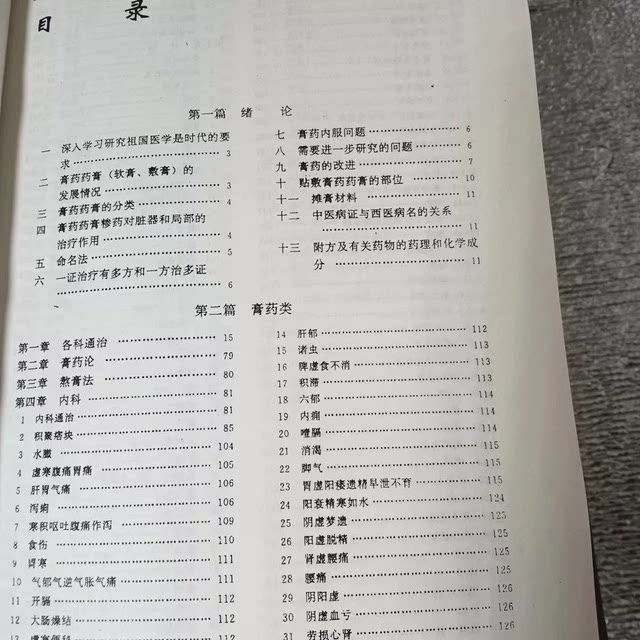 目 录
第一篇 绪 论
一 深入学习研究祖国医学是时代的要
求 3
二 膏药药膏（软膏、敷膏）的
发展情况 3
三 膏药药膏的分类 4
四 膏药药膏糁药对脏器和局部的
治疗作用 4
五 命名法 5
六 一证治疗有多方和一方治多证
6
七 膏药内服问题 6
八 需要进一步研究的问题 6
九 膏药的改进 7
十 贴敷膏药药膏的部位 10
十一 摊膏材料 11
十二 中医病证与西医病名的关系
11
十三 附方及有关药物的药理和化学成
分 11
第二篇 膏药类
第一章 各科通治 15
第二章 膏药论 79
第三章 熬膏法 80
第四章 内科 81
1 内科通治 81
2 积聚痞块 85
3 水臌 104
4 虚寒腹痛胃痛 105
5 肝胃气痛 106
6 泻痢 106
7 寒积呕吐腹痛作泻 109
8 食伤 110
9 胃寒 111
10 气郁气逆气胀气痛 111
11 开膈 111
12 大肠燥结 111
14 肝郁 112
15 诸虫 113
16 脾虚食不消 113
17 积滞 113
18 六郁 113
19 内痈 113
20 噎膈 114
21 消渴 115
22 脚气 115
23 肾虚阳痿遗精早泄不育 115
24 阳衰精寒如水 124
25 阴虚梦遗 125
26 阳虚脱精 125
27 肾虚腰痛 125
28 腰痛 125
29 阴阳虚 126
30 阴虚血亏 126
31 劳损心肾 126